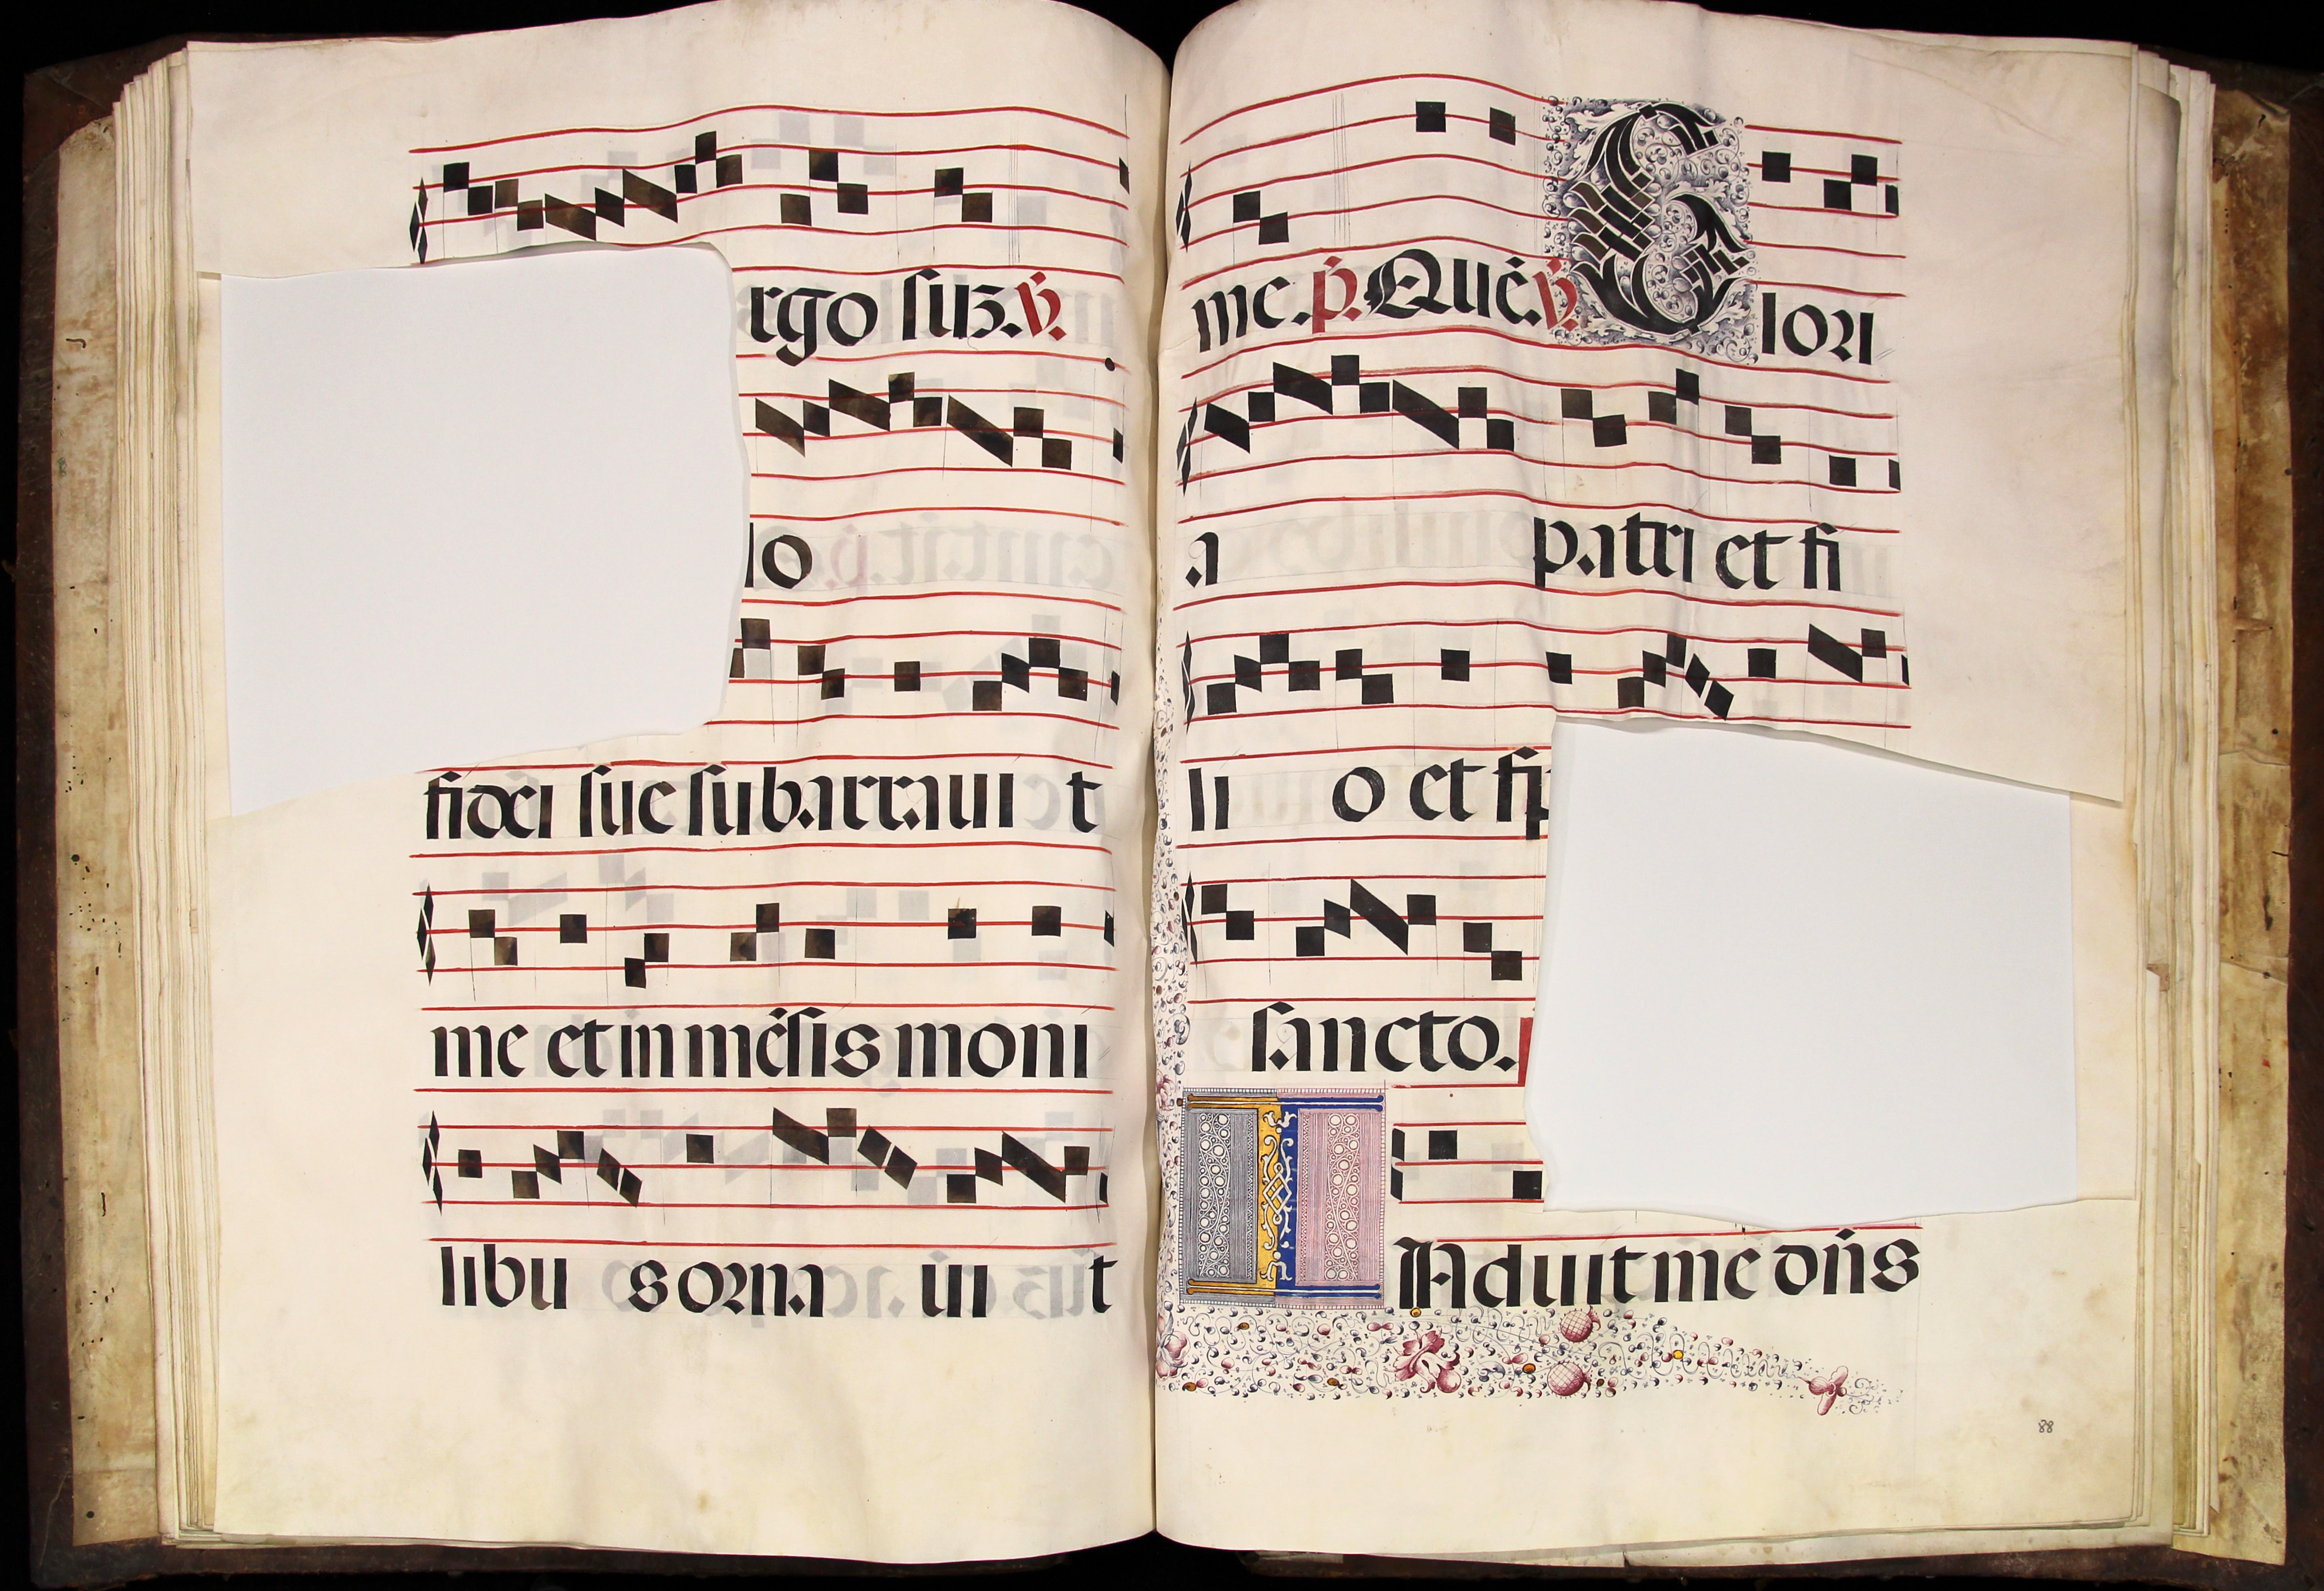 rgo suʒ. ℣.
lo
fidei sue subarraui t
me et in mēsis moni
libu s orna ui t
me. p̄. Quē. ℣. Glori
a patri et fi
li o et sp
sancto.
INduit me dn̄s
88